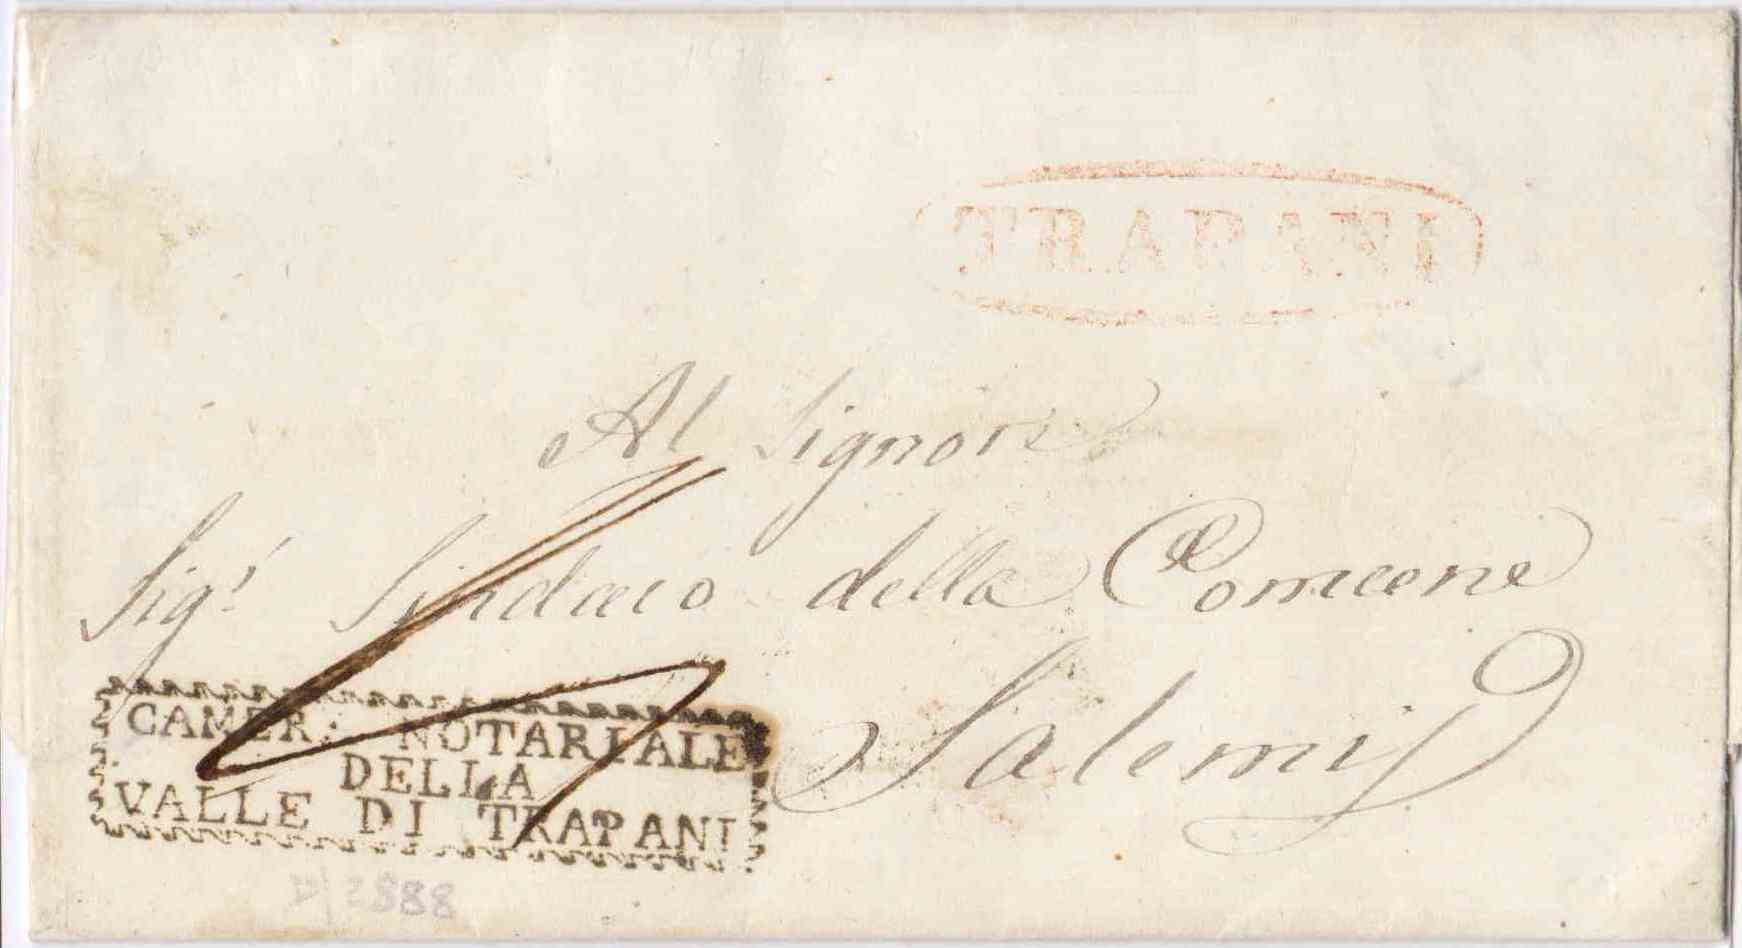 TRAPANI
Al Signore
Sig.r Sindaco della Comune
Salemi
CAMER: NOTARIALE
DELLA
VALLE DI TRAPANI